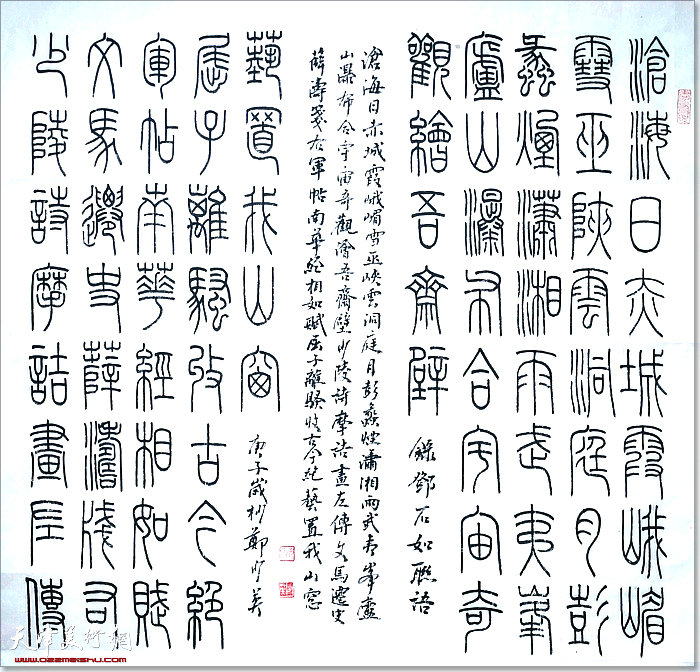 滄海日赤城霞峨嵋
雪巫峽雲洞庭月彭
蠡煙瀟湘雨武夷峯
廬山瀑布合宇宙奇
觀繪吾齋壁
錄鄧石如聯語
少陵詩摩詰畫左傳
文馬遷史薛濤牋右
軍帖南華經相如賦
屈子離騷收古今絕
藝置我山窗
滄海日赤城霞峨嵋雪巫峽雲洞庭月彭蠡煙瀟湘雨武夷峯廬
山瀑布合宇宙奇觀繪吾齋壁少陵詩摩詰畫左傳文馬遷史
薛濤箋右軍帖南華經相如賦屈子離騷收古今絕藝置我山窗
庚子歲杪鄭
天津美術網
www.022meishu.com